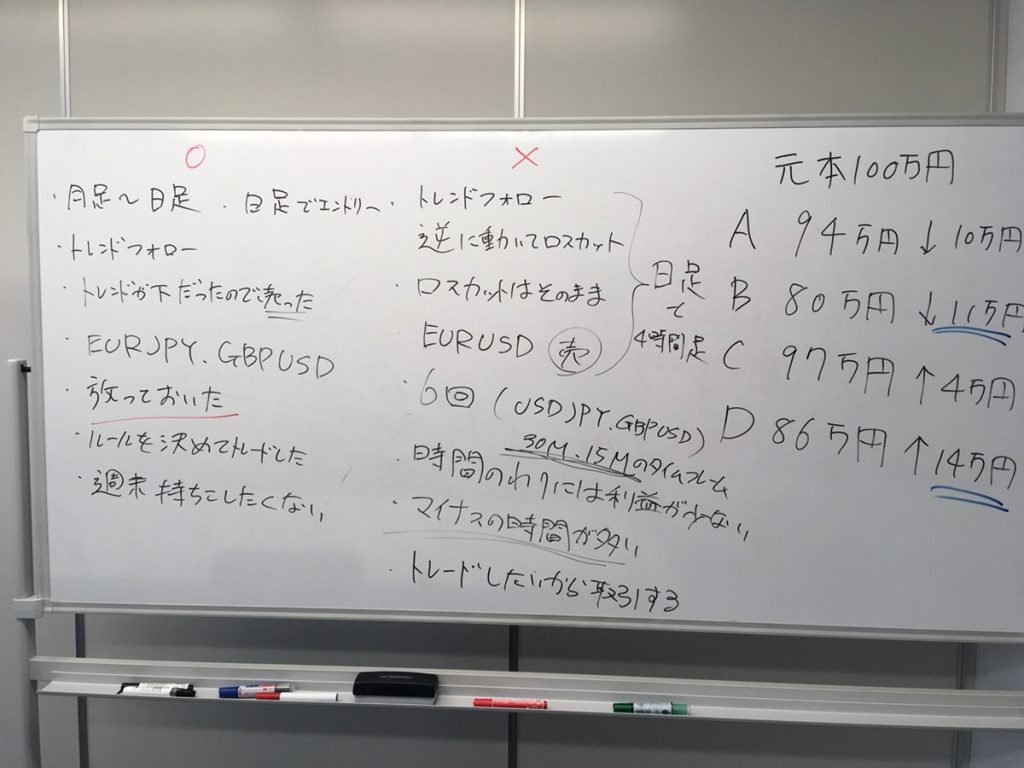 ○
・月足〜日足 ・日足でエントリー
・トレンドフォロー
・トレンドが下だったので売った
・EURJPY.GBPUSD
・放っておいた
・ルールを決めてトレードした
・週末持ちこしたくない
×
・トレンドフォロー
逆に動いてロスカット
・ロスカットはそのまま
EURUSD 売
日足
と
4時間足
・6回(USDJPY.GBPUSD)
30M.15Mのタイムフレーム
・時間のわりには利益が少ない
・マイナスの時間が多い
・トレードしたいから取引する
元本100万円
A 94万円 ↓ 10万円
B 80万円 ↓ 11万円
C 97万円 ↑ 4万円
D 86万円 ↑ 14万円